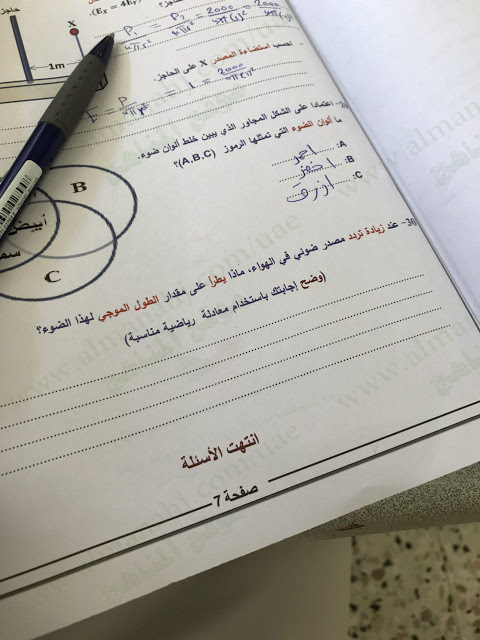 (Eₓ = 4Eᵧ).
حاجز
X
1m
P₁ = P₂ = 2000
احسب استضاءة المصدر X على الحاجز.
2000
اعتمادا على الشكل المجاور الذي يبين خلط ألوان ضوء.
ما ألوان الضوء التي تمثلها الرموز (A,B,C)؟
A: احمر
B: اخضر
C: ازرق
B
أبيض
سما
C
30- عند زيادة تردد مصدر ضوئي في الهواء، ماذا يطرأ على مقدار الطول الموجي لهذا الضوء؟
(وضح إجابتك باستخدام معادلة رياضية مناسبة)
انتهت الأسئلة
صفحة 7
www.almanahj.com/uae
موقع المناهج